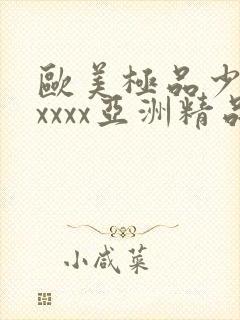 歐美極品少
xxxx亞洲精品
小咸菜